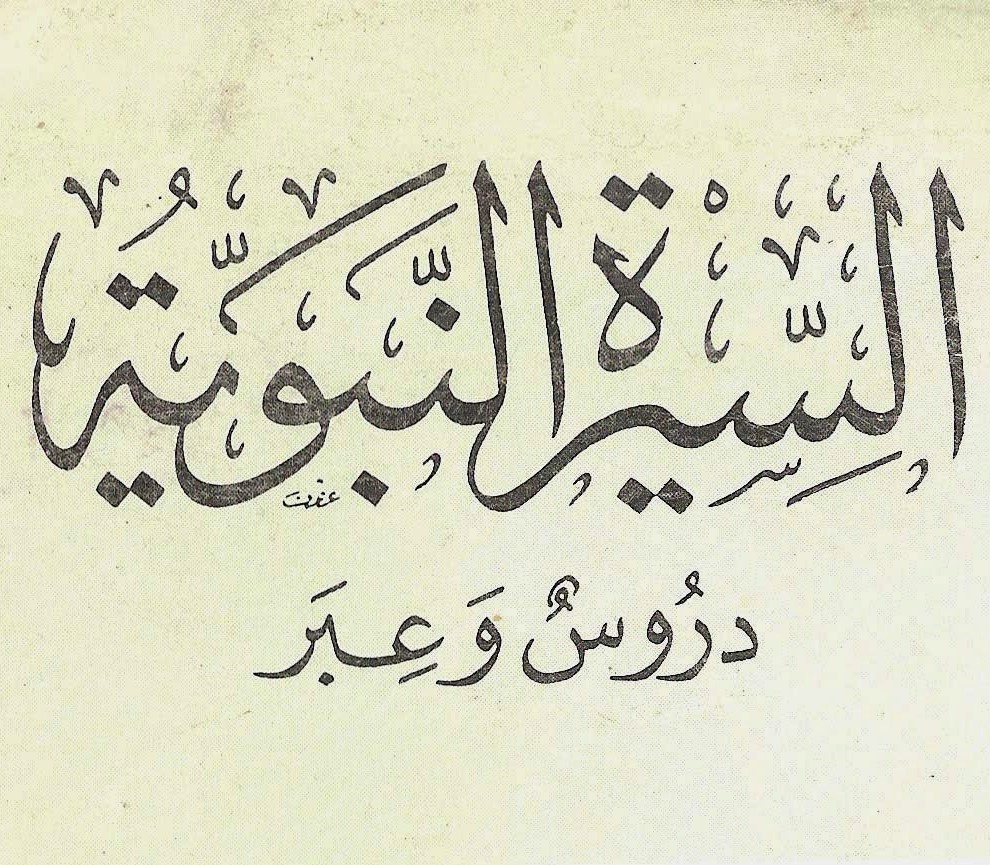 السِّيرة النَّبَويَّةُ
درُوسٌ وَعِبَر